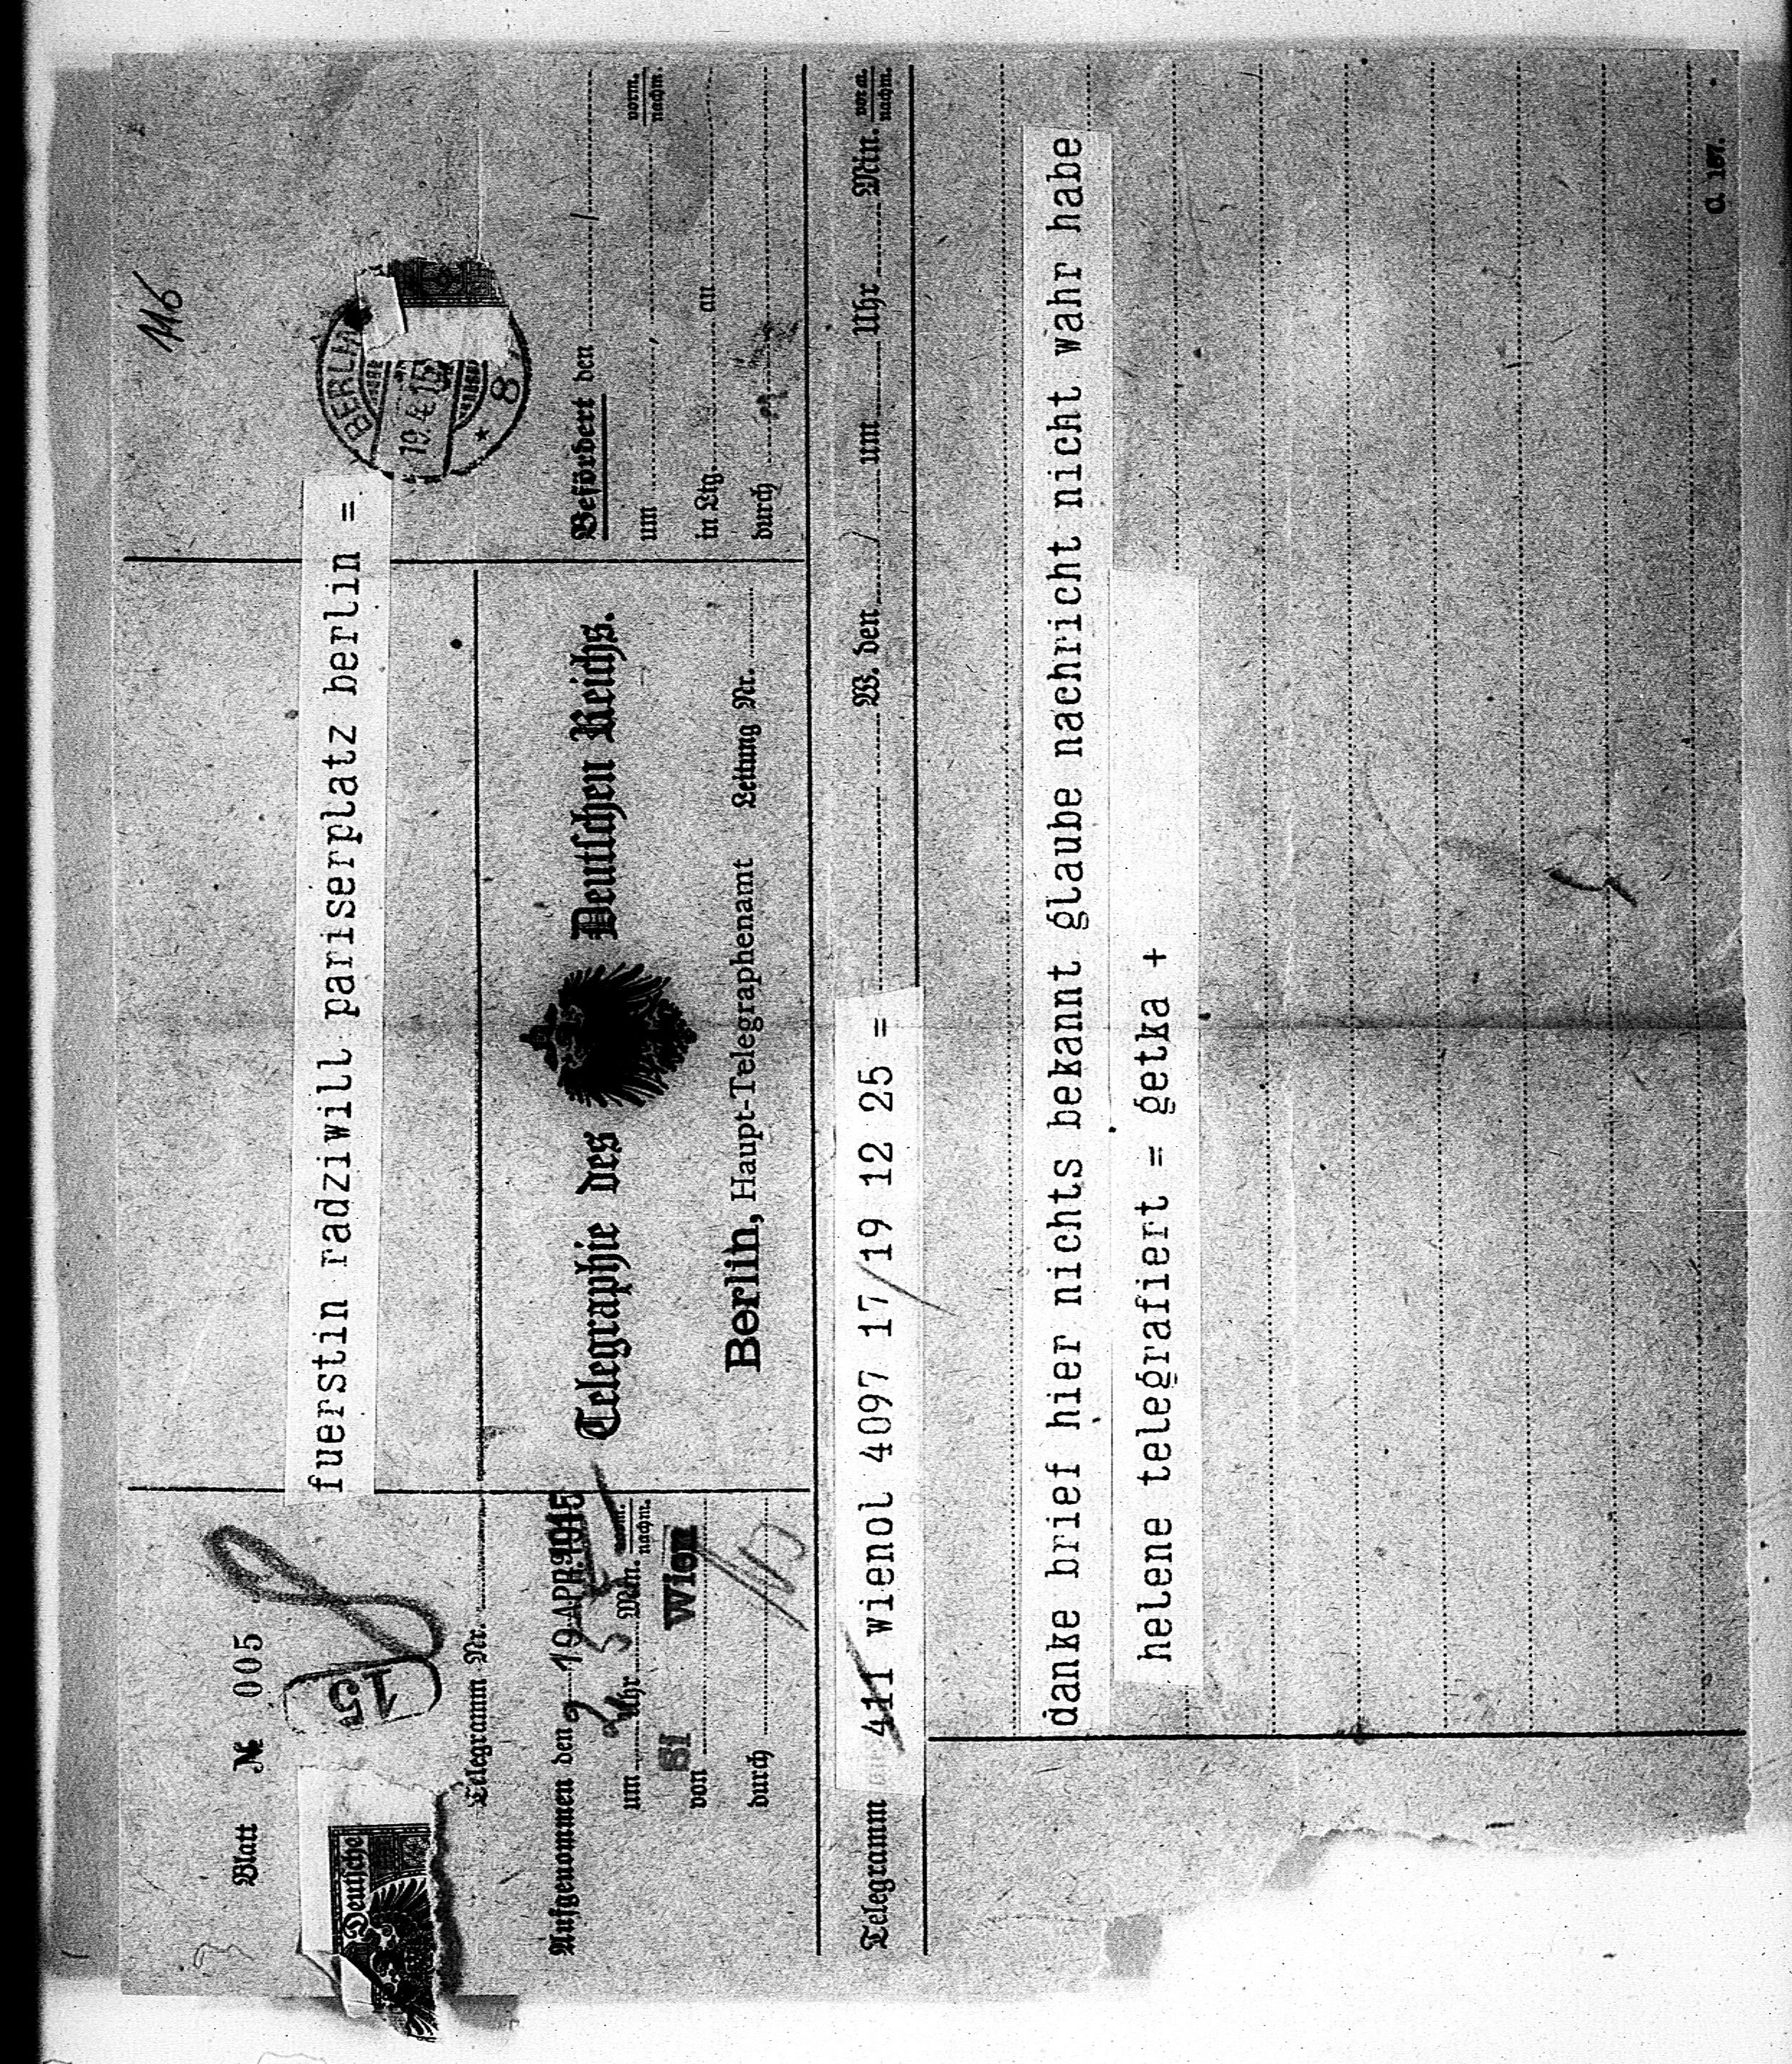 116
Blatt № 005
15
fuerstin radziwill pariserplatz berlin =
BERLIN
19.4.15
* 8
Deutsche
Telegramm Nr.
Aufgenommen den 19 APR. 1915
um Uhr Min. vorm. nachm.
51
von Wien
durch
Telegraphie des Deutschen Reichs.
Berlin, Haupt-Telegraphenamt Leitung Nr.
Befördert den /
um vorm. nachm.
in Ltg. an
durch
Telegramm 411 wienol 4097 17/19 12 25 = W. den / um Uhr Min. vorm. nachm.
danke brief hier nichts bekannt glaube nachricht nicht wahr habe
helene telegrafiert = getka +
C. 187.